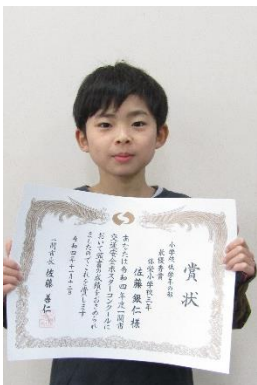 賞状
小学校低学年の部
最優秀賞
弥栄小学校三年
佐藤 銀仁 様
あなたは令和四年度一関市
交通安全ポスターコンクールに
おいて頭書の成績をおさめられ
ましたのでこれを賞します
令和四年十一月十二日
一関市長 佐藤 善仁